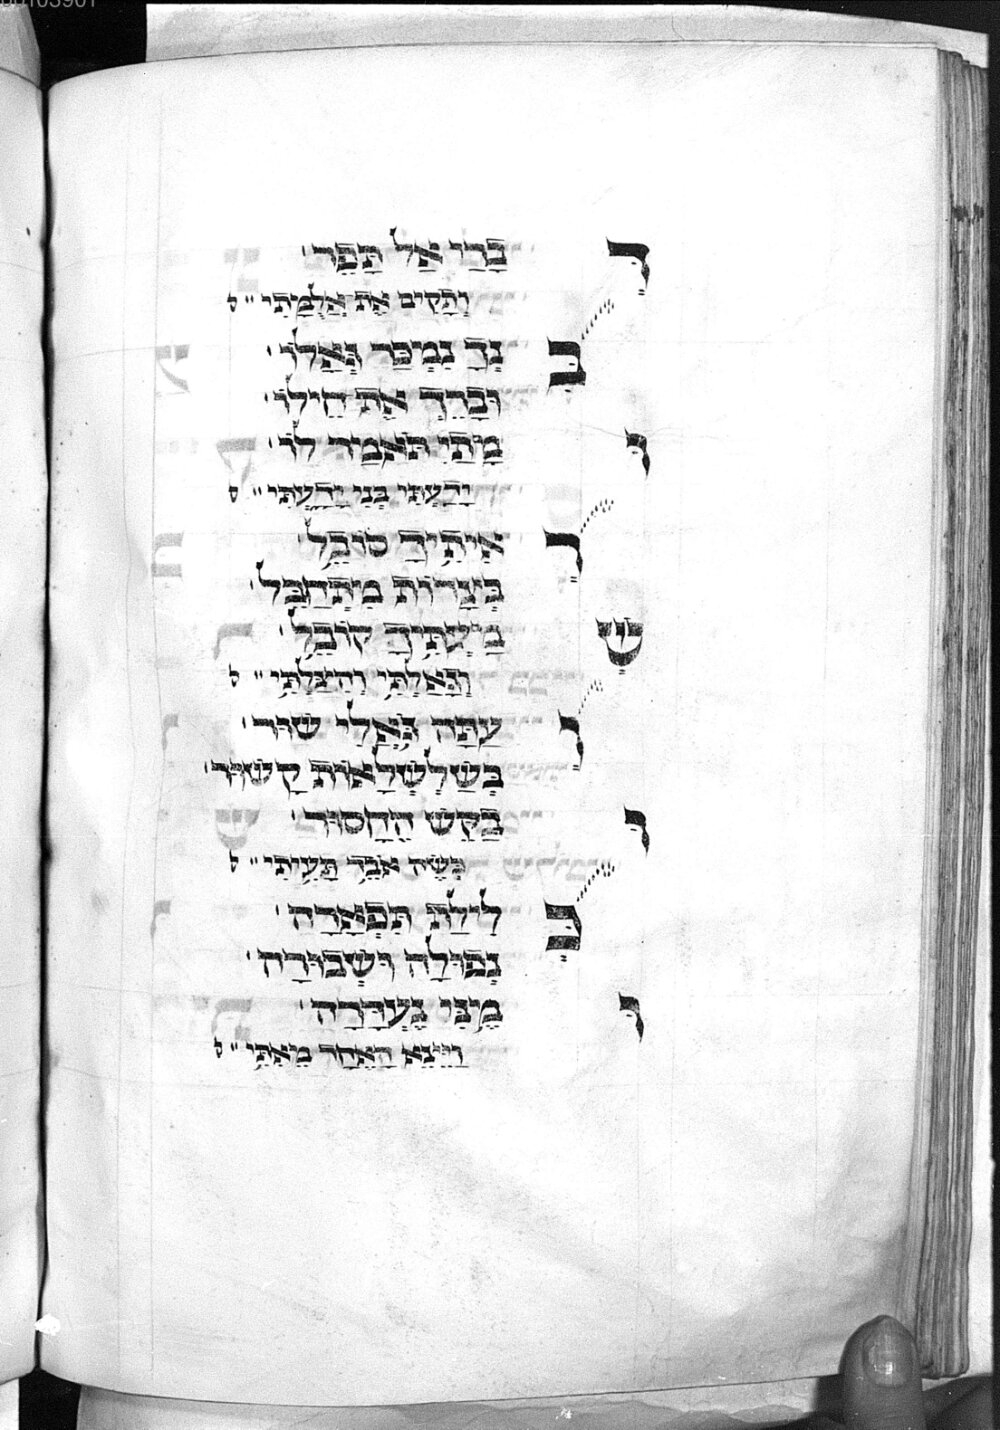 דְ בָרַי אַל תָּפֵר
וְתָקִים אֶת אֲלֻמָּתִי ״ ס
בִּ נְךָ נִמְכַּר גְּאָלוֹ
וּבָרֵךְ אֶת חֵילוֹ
וּ מָתַי תֹּאמַר לוֹ
יָדַעְתִּי בְּנִי יָדַעְתִּי ״ ס
רְ אִיתִיךָ סוֹבֵל
בְּצָרוֹת מִתְחַבֵּל
שְׁ מַעְתִּיךָ קוֹבֵל
וְגָאַלְתִּי וְהִצַּלְתִּי ״ ס
וְ עַתָּה גֹּאֲלִי שׁוּר
בְּשַׁלְשְׁלָאוֹת קָשׁוּר
וּ בַקֵּשׁ הֶחָסוּר
כְּשֶׂה אֹבֵד תָּעִיתִי ״ ס
כְּ לִילַת תִּפְאָרָה
נְפוּלָה וּשְׁבוּרָה
וּ מִינִּי נֶעְדָּרָה
וַיֵּצֵא הָאֶחָד מֵאִתִּי ״ ס